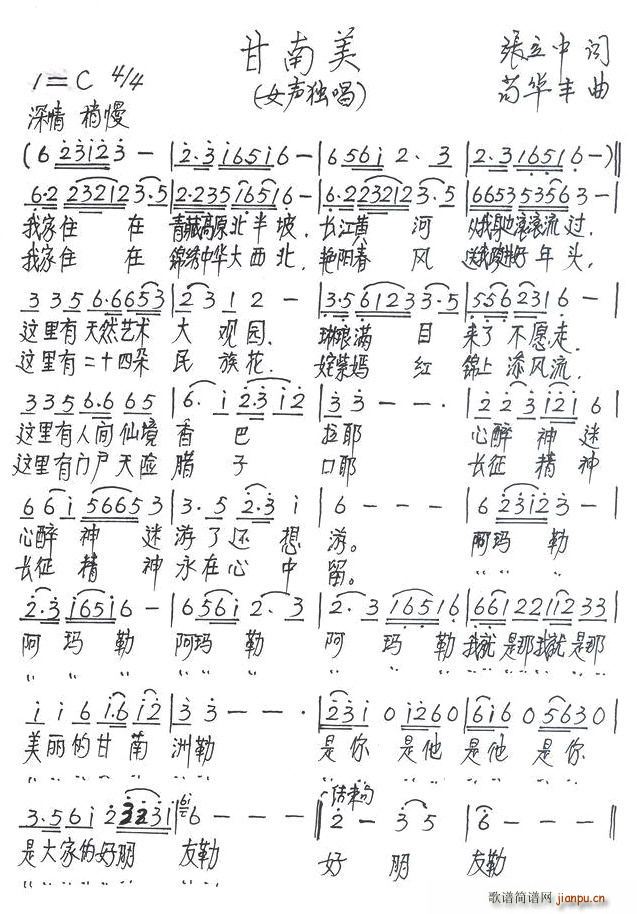 甘南美
(女声独唱)
张立中 词
苟华丰 曲
1=C 4/4
深情 稍慢
(6 23123 - | 2·3 16516 - | 6 561 2·3 | 2·3 1651 6 -)
6·2 232123·5 | 2·235 16516 | 6·2 232123·5 | 6653 5356 3
我家住 在 青藏高原北半坡, 长江黄 河 从我身边滚滚流过,
我家住 在 锦绣中华大西北, 艳阳春 风 年头,
3 3 3 5 6·6653 | 2 3 1 2 - | 3·5 61233·5 | 5562316 -
这里有天然艺术 大 观园, 琳琅满 目 来了 不愿走,
这里有二十四朵 民 族花, 姹紫嫣 红 锦上 添风流,
3 3 3 5 6·6 6 5 | 6· 1 2·3 1 2 | 3 3 - - | 2 2 3 1 2 1 6
这里有人间仙境 香 巴 拉耶 心醉 神 迷
这里有门户天险 腊 子 口耶 长征 精 神
6 6 1 5 6 6 5 3 | 3·5 2·3 1 | 6 - - - | 6 2 3 1 2 3 -
心醉 神 迷 游了还 想 游。 阿玛 勒
长征 精 神 永在心 中 留。 〃 〃 〃
2·3 16516 - | 6 561 2·3 | 2·3 1651 6 | 661 22 112 33
阿 玛 勒 阿玛 勒 阿 玛 勒 我就 是那我就 是那
1 1 6 1·6 1 2 | 3 3 - - | 2 3 1 0 1 2 6 0 | 6 1 6 0 5 6 3 0
美丽的甘 南 洲勒 是你 是他 是他 是你
3·5 6 1 2 32 31 | 6 - - - | 2 - 3 5 | 6 - - -
结束句
是大家的好朋 友勒 好 朋 友勒
歌谱简谱网
jianpu.cn